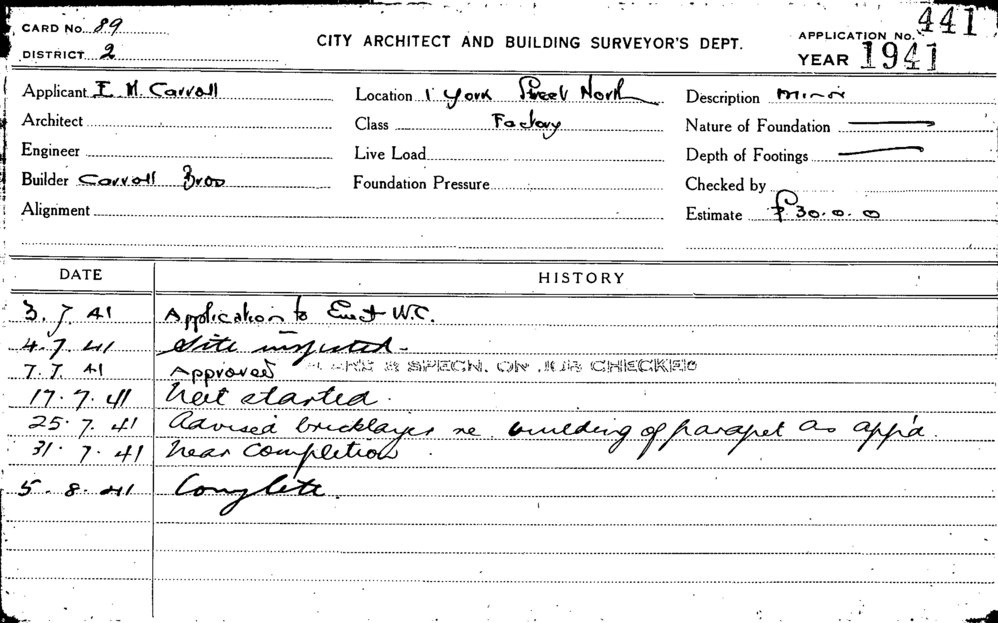 CARD No. 89
DISTRICT 2
CITY ARCHITECT AND BUILDING SURVEYOR'S DEPT.
APPLICATION No. 441
YEAR 1941
Applicant E. M. Carroll
Location 1 York Street North
Description minor
Architect
Class Factory
Nature of Foundation
Engineer
Live Load
Depth of Footings
Builder Carroll Bros
Foundation Pressure
Checked by
Alignment
Estimate £30.0.0
DATE HISTORY
3.7.41 Application to Erect W.C.
4.7.41 Site inspected.
7.7.41 Approved PLANS & SPECN. ON JOB CHECKED
17.7.41 Not started.
25.7.41 Advised bricklayer re building of parapet as app'd.
31.7.41 Near completion
5.8.41 Complete.